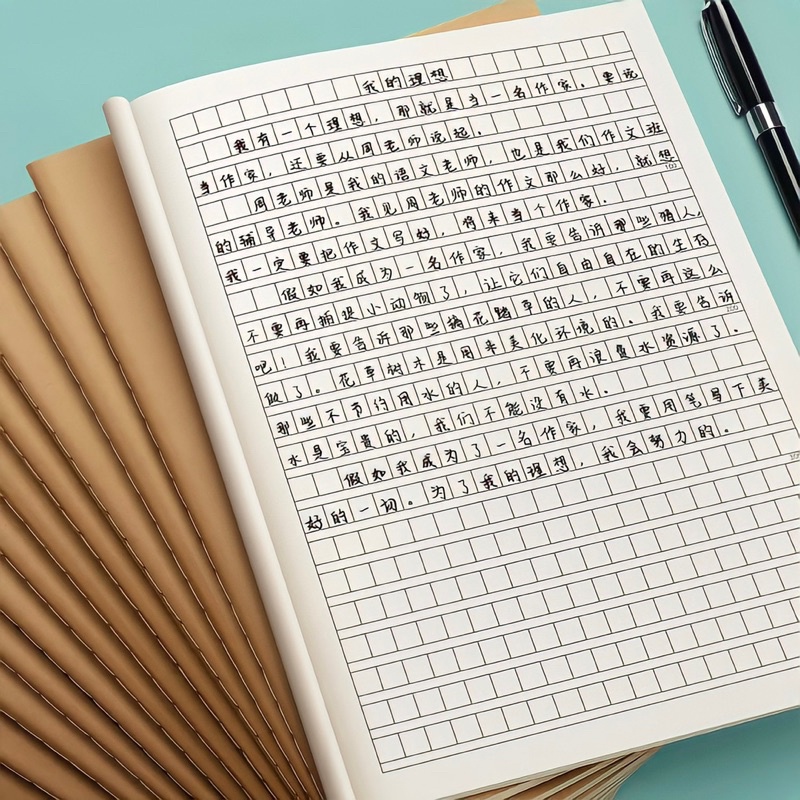 我的理想
我有一个理想，那就是当一名作家。要说
当作家，还要从周老师说起。
周老师是我的语文老师，也是我们作文班
的辅导老师。我见周老师的作文那么好，就想
100
我一定要把作文写好，将来当个作家。
假如我成为一名作家，我要告诉那些猎人，
不要再捕捉小动物了，让它们自由自在的生存
吧！我要告诉那些摘花踏草的人，不要再这么
200
做了。花草树木是用来美化环境的。我要告诉
那些不节约用水的人，不要再浪费水资源了。
水是宝贵的，我们不能没有水。
假如我成为了一名作家，我要用笔写下美
300
好的一切。为了我的理想，我会努力的。